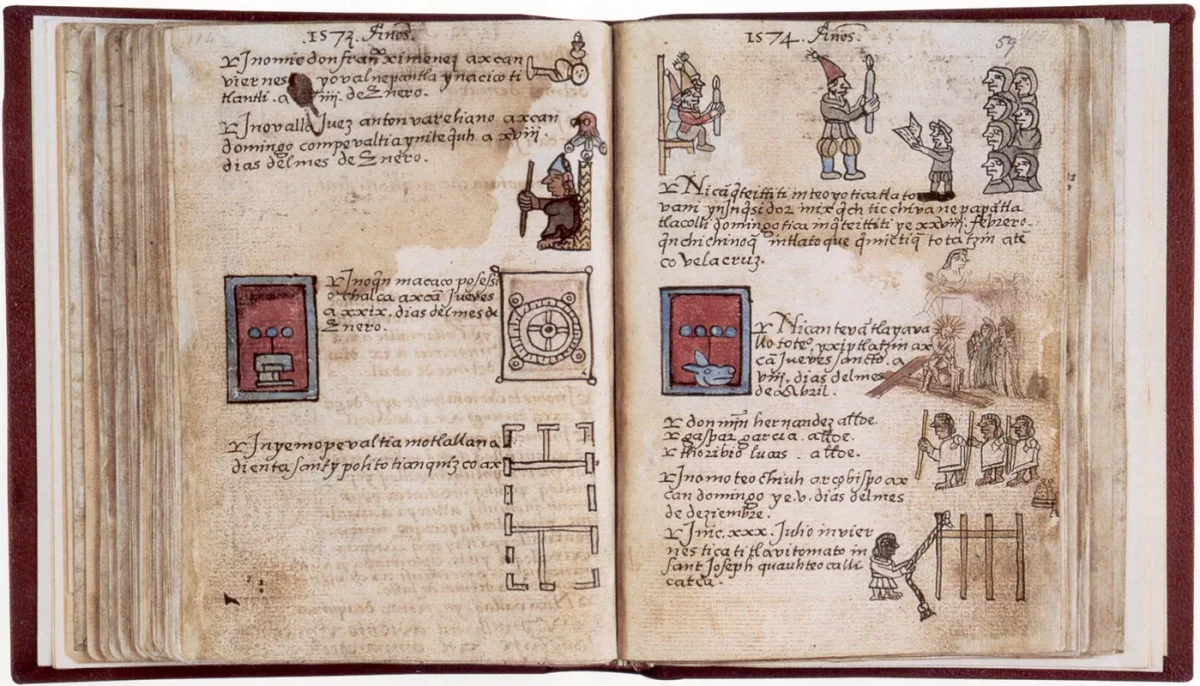 .1573. Años.
Inomic don franco ximenez axcan
viernes yovalnepantla ynacico ti
tlantli. a iiij. de Enero.
Inovalla Juez anton vareliano axcan
domingo compevaltia ynitequh a xviij.
dias delmes de Enero.
Inoqn macaco posessi
o chalca axcā Jueves
a xxix. dias delmes de
Enero.
Inyemopevaltia motlallana
dienta sant ypolito tianquizco ax
1574. Años.
59
Nicā qteittiti in teoyotica tlato
vani yn Inqsidor mixqch tic chiva nepapātla
tlacolli domingotica inqteittiti ye xxviij. febrero.
qnchichinoq intlatoque qmictiq totatzin atē
co velacruz.
Nican tevā tlayava
llo toteo yxiptlatzin ax
cā Jueves sancto. a
viij. dias delmes
de Abril.
don min hernandez allde.
gaspar garcia. allde.
thoribio lucas. allde.
Inomoteochiuh arçobispo ax
can domingo ye .v. dias delmes
de deziembre.
Inic. xxx. Julio in vier
nestica titlavitomato in
sant Joseph quauhteocalli
catca.